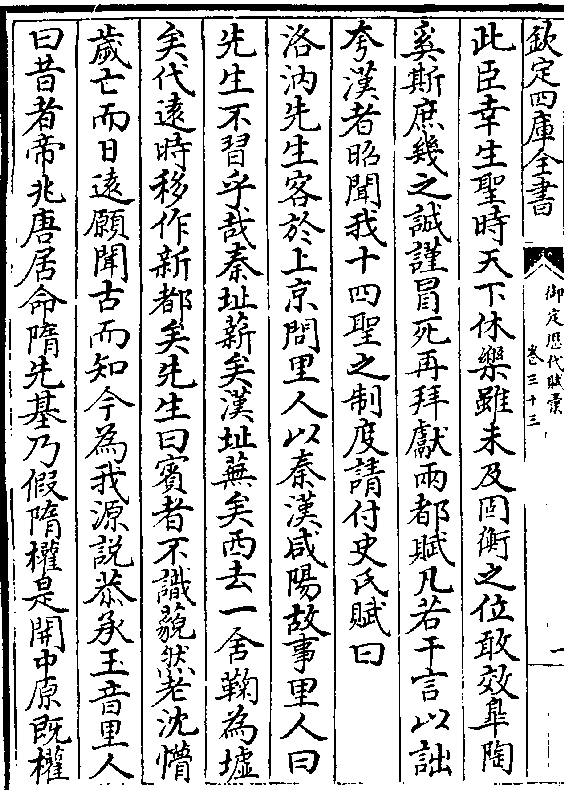 欽定四庫全書
御定歷代賦彙
卷三十三
一
此臣幸生聖時天下休樂雖未及罔衡之位敢效臯陶
奚斯庶幾之誠謹冒死再拜獻兩都賦凡若干言以詘
夸漢者昭聞我十四聖之制度請付史氏賦曰
洛汭先生客於上京問里人以秦漢咸陽故事里人曰
先生不習乎哉秦址薪矣漢址蕪矣西去一舍鞠為墟
矣代遠時移作新都矣先生曰賓者不識藐然老沈懵
歲亡而日遠願聞古而知今為我源説恭承玉音里人
曰昔者帝兆唐居命隋先基乃假隋權是開中原既權